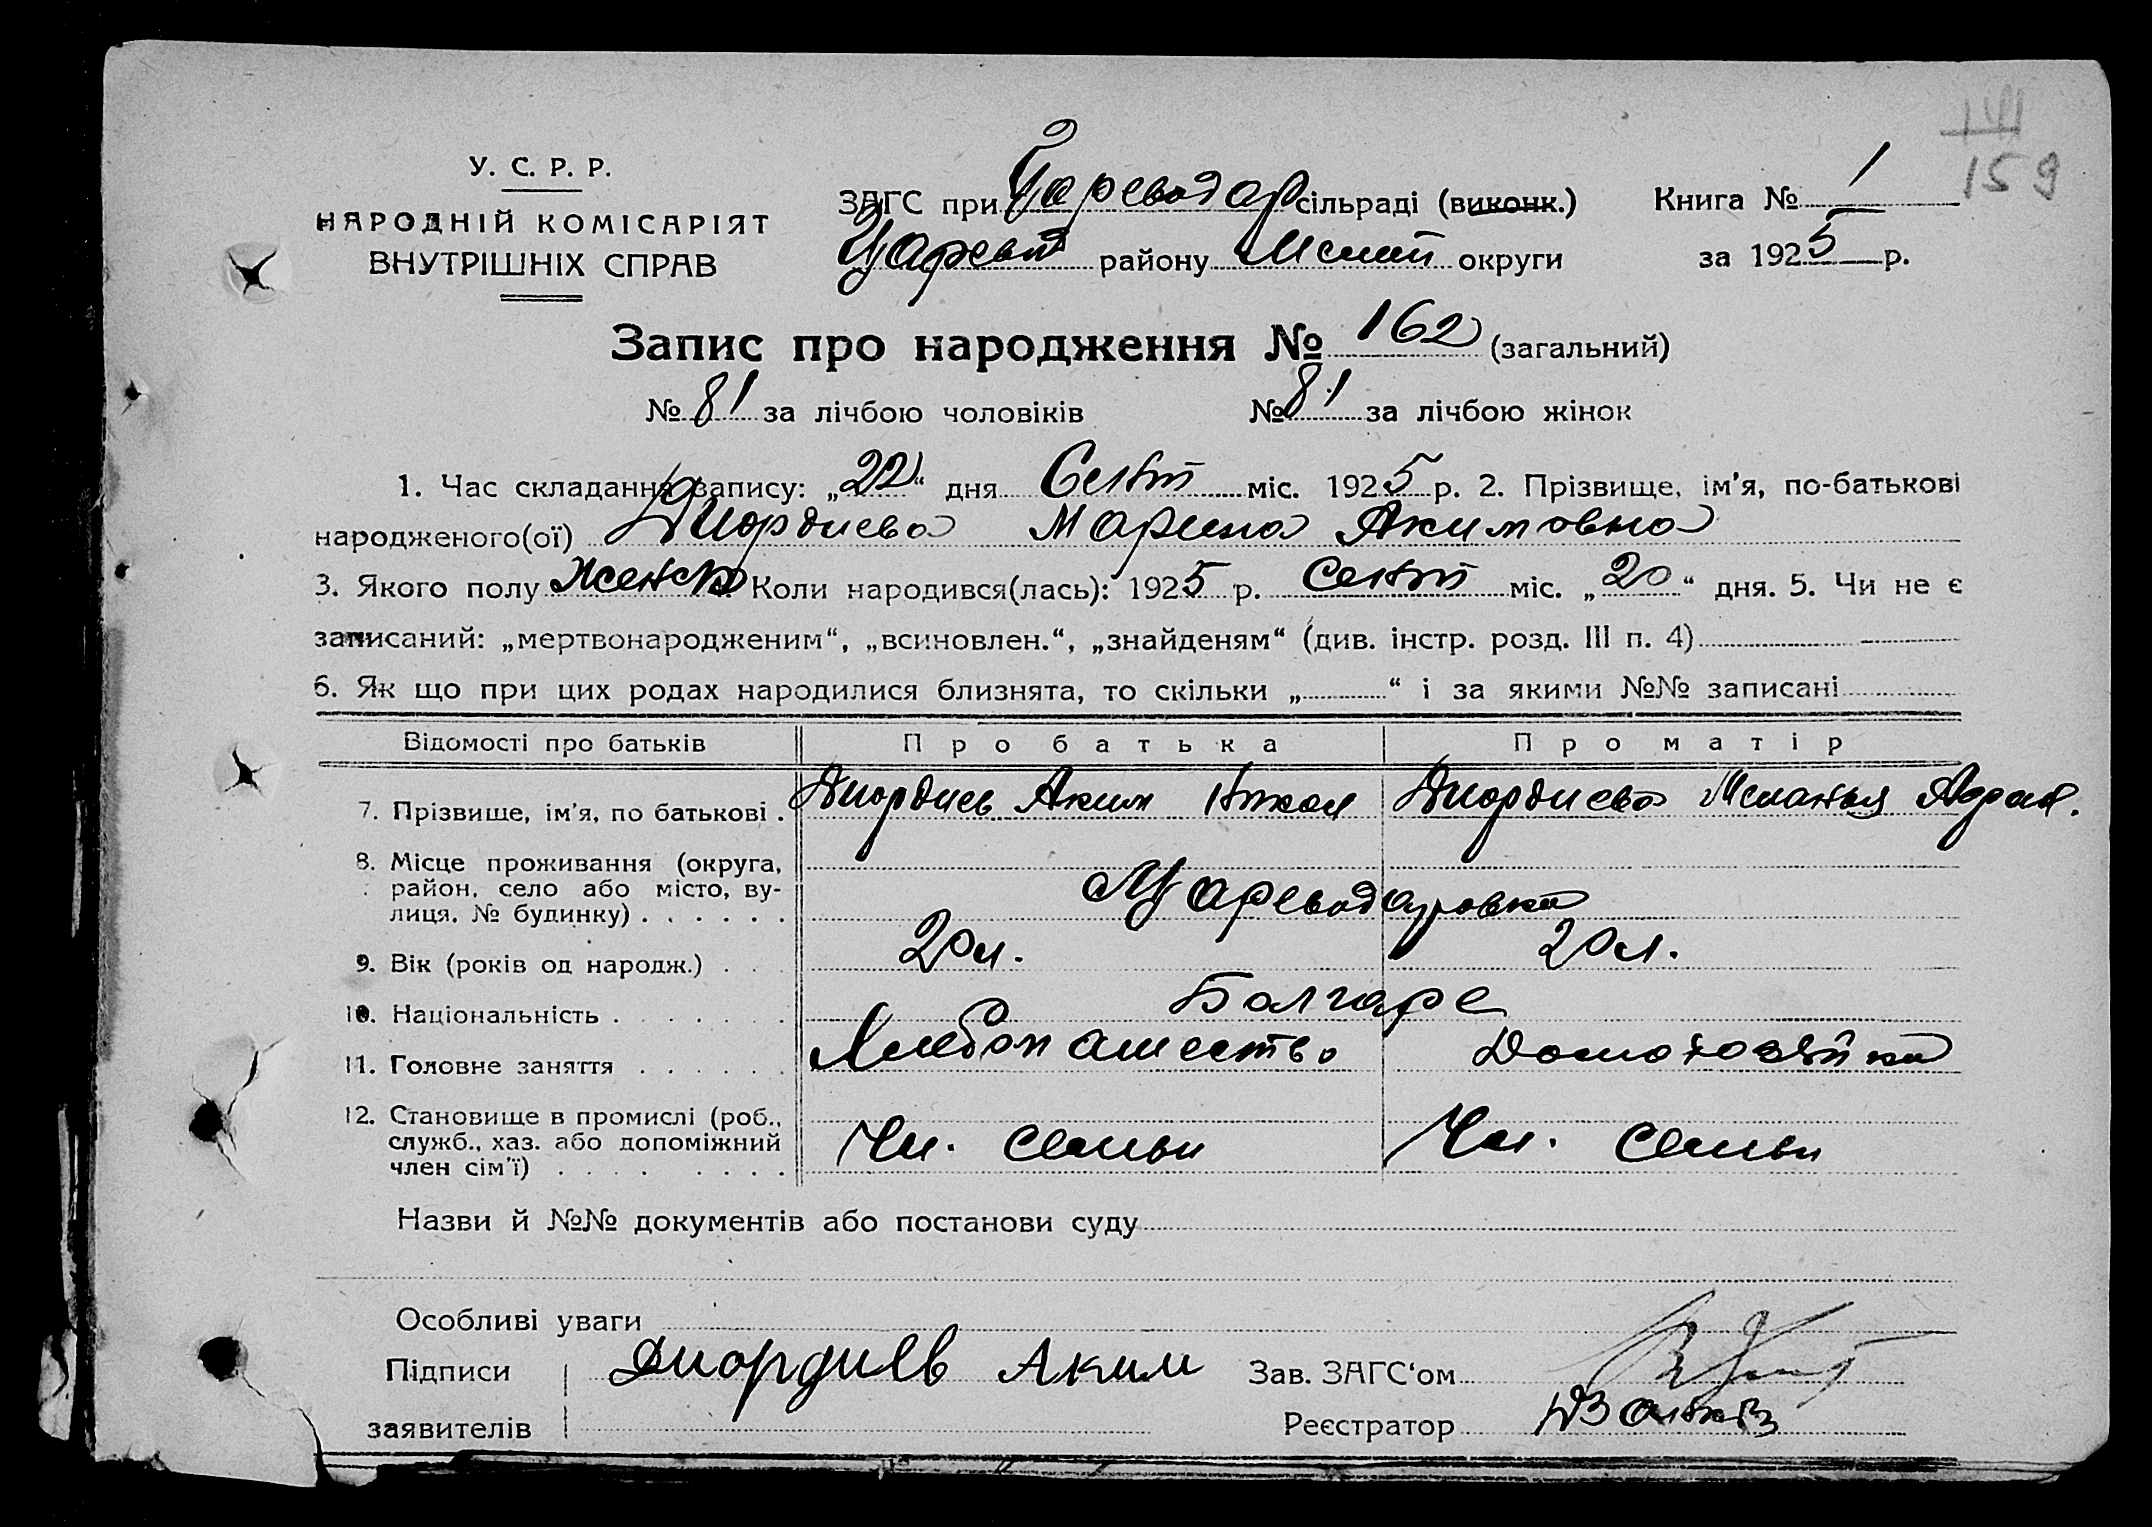 141
159
У. С. Р. Р.
НАРОДНІЙ КОМІСАРІЯТ
ВНУТРІШНІХ СПРАВ
ЗАГС при Цареводар сільраді (виконк.)
Царевод району округи
Книга № 1
за 1925 р.
Запис про народження № 162 (загальний)
№ 81 за лічбою чоловіків № 81 за лічбою жінок
1. Час складання запису: „22“ дня Сент міс. 1925 р. 2. Прізвище, ім'я, по-батькові
народженого(ої) Диордиева Марина Акимовна
3. Якого полу Женск Коли народився(лась): 1925 р. Сент міс. „20“ дня. 5. Чи не є
записаний: „мертвонародженим“, „всиновлен.“, „знайденям“ (див. інстр. розд. III п. 4)
6. Як що при цих родах народилися близнята, то скільки „ “ і за якими №№ записані
Відомості про батьків Про батька Про матір
7. Прізвище, ім'я, по батькові . Диордиев Аким Никол Диордиева Меланья
8. Місце проживання (округа,
район, село або місто, ву-
лиця, № будинку) . . . . . . Цареводаровка
9. Вік (років од народж.) . . . 20 л. 20 л.
10. Національність . . . . . . Болгаре
11. Головне заняття . . . . . . Хлебопашество Домохозяйка
12. Становище в промислі (роб.,
служб., хаз. або допоміжний
член сім'ї) . . . . . . . . Чл. семьи Чл. семьи
Назви й №№ документів або постанови суду
Особливі уваги
Підписи
заявителів
Диордиев Аким
Зав. ЗАГС'ом
Реєстратор